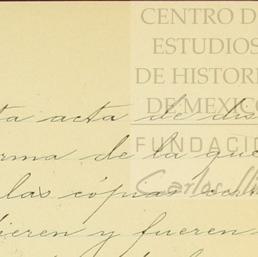 CENTRO D
ESTUDIOS
DE HISTOR
DE MEXIC
FUNDACI
Carlos Sli
ta acta de dis
orma de la que
las copias
dieren y fueren